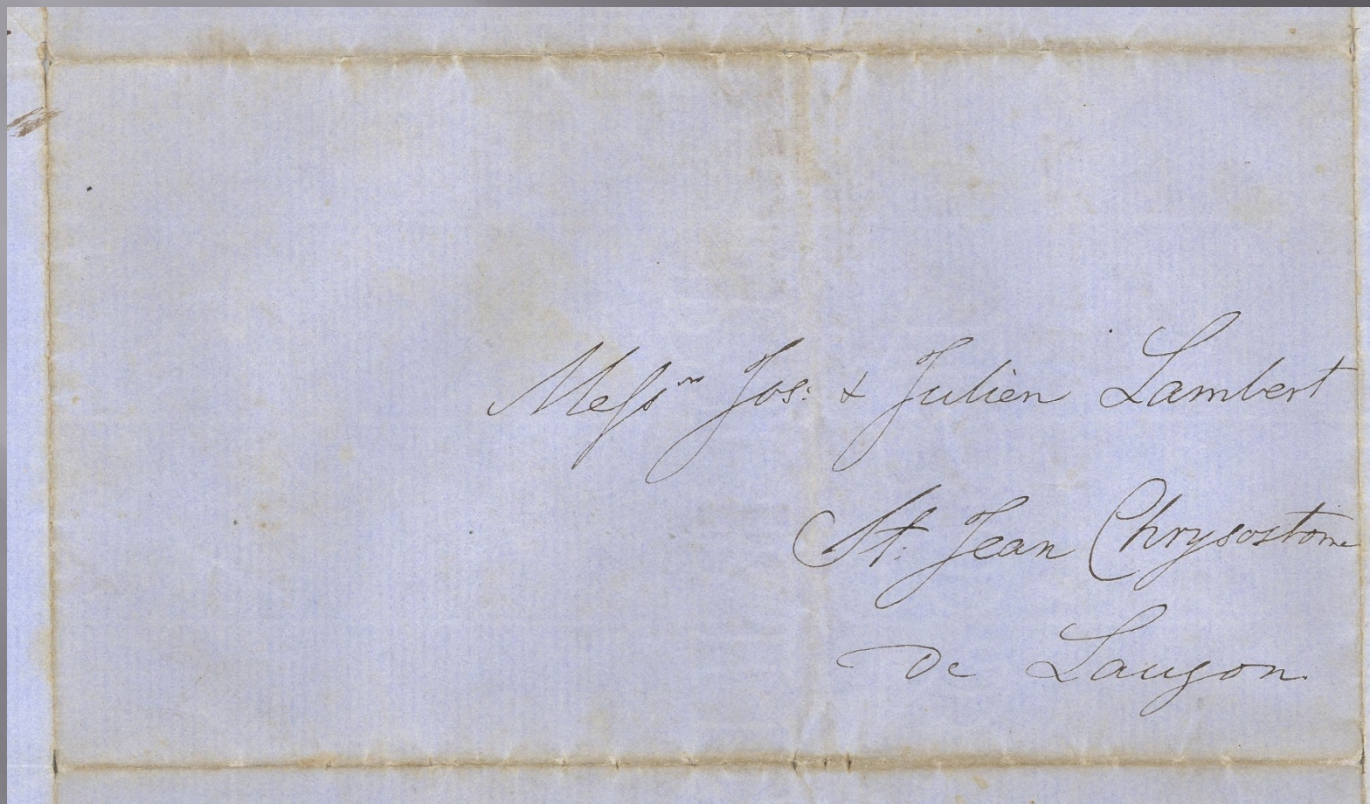 Messrs Jos: & Julien Lambert
St. Jean Chrysostome
De Lauzon.